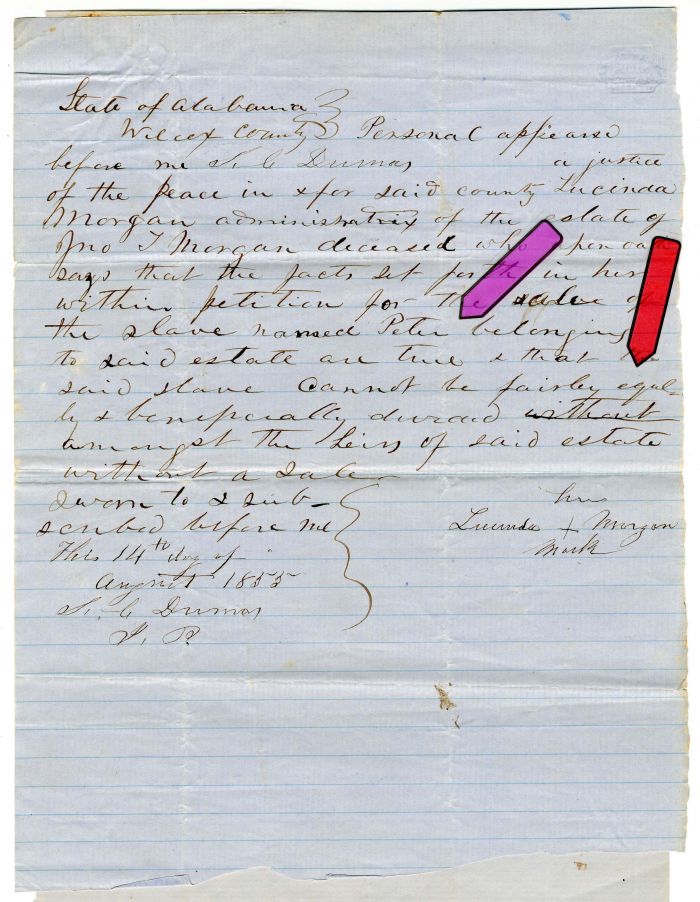 State of Alabama
Wilcox County Personal appeard
before me S. C Dumas a justice
of the peace in & for said county Lucinda
Morgan administratrix of the estate of
Jno T Morgan deceased who upon oath
says that the facts set forth in her
within petition for the sale of
the slave named Peter belonging
to said estate are true & that the
said slave cannot be fairley equl-
ly & beneficially divided without
amongst the heirs of said estate
without a sale
sworn to & sub-
scribed before me
This 14th day of
August 1855
S. C Dumas
J. P.
her
Lucinda + Morgan
Mark